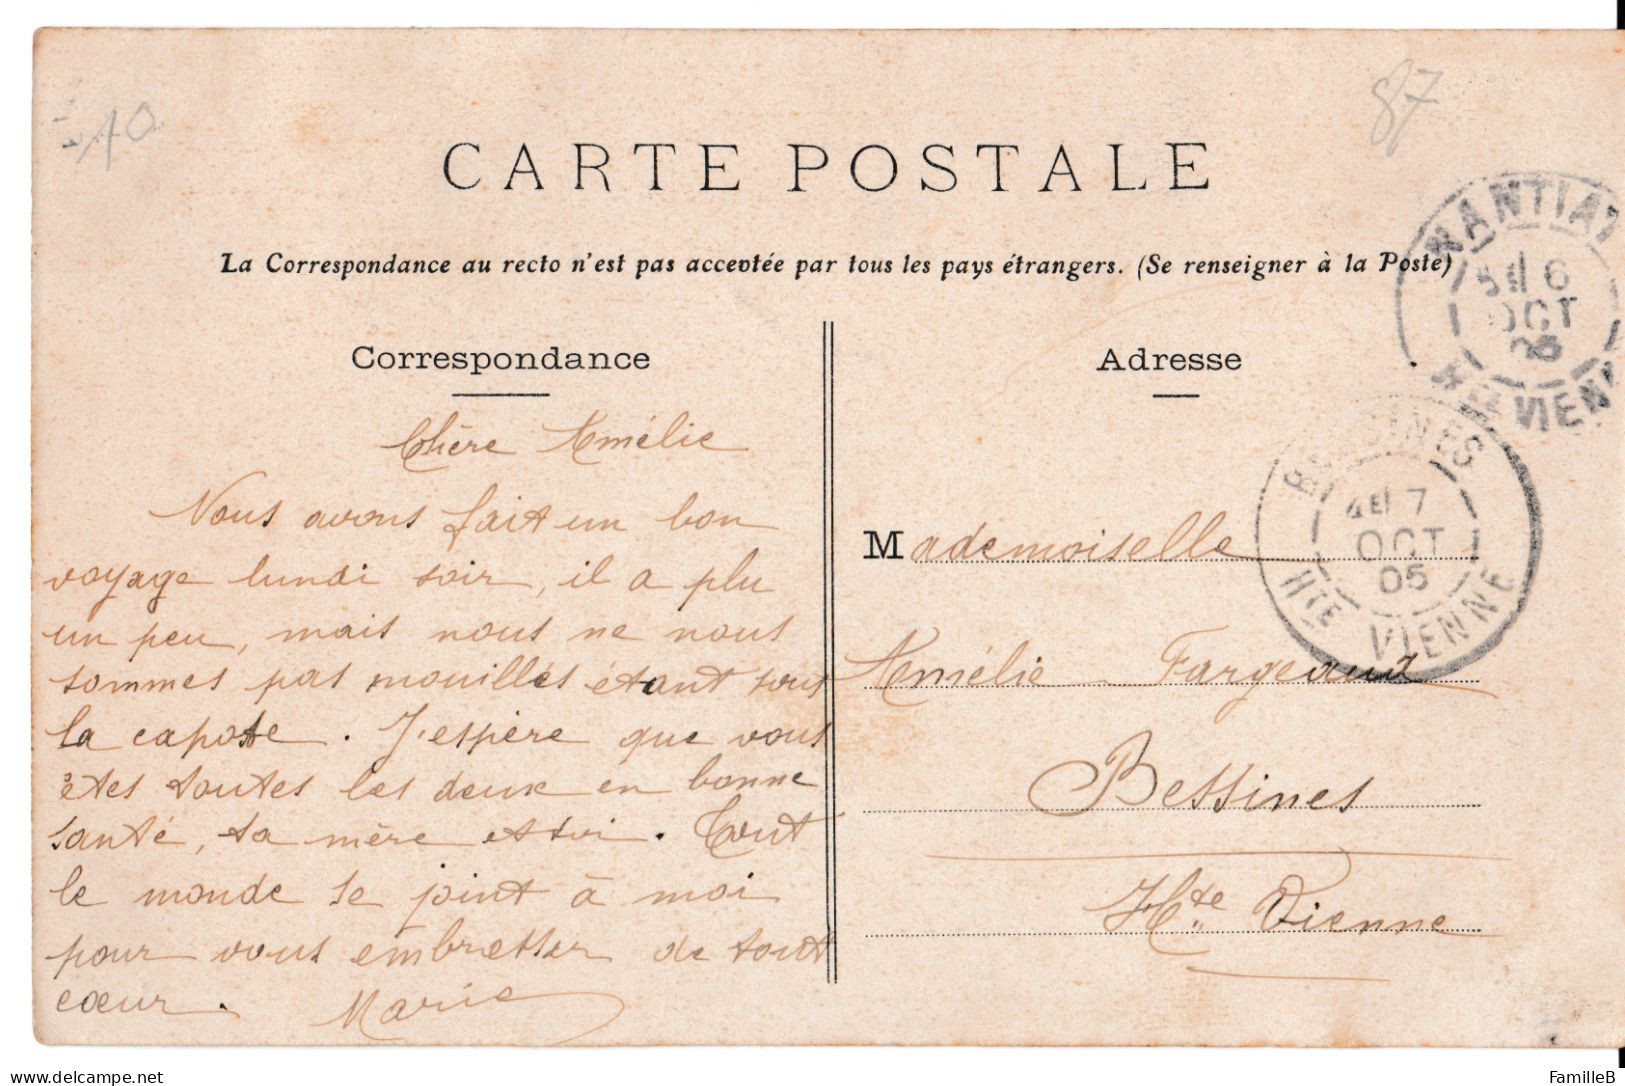 10
87
CARTE POSTALE
La Correspondance au recto n'est pas acceptée par tous les pays étrangers. (Se renseigner à la Poste)
NANTIAT
6
OCT
05
Hte VIENNE
Correspondance
Chère Amélie
Nous avons fait un bon
voyage lundi soir, il a plu
un peu, mais nous ne nous
sommes pas mouillés étant sous
la capote. J'espère que vous
êtes toutes les deux en bonne
santé, ta mère et toi. Tout
le monde se joint à moi
pour vous embrasser de tout
cœur. Marie
Adresse
BESSINES
7
OCT
05
Hte VIENNE
Mademoiselle
Amélie Fargeaux
Bessines
Hte Vienne
www.delcampe.net
FamilleB